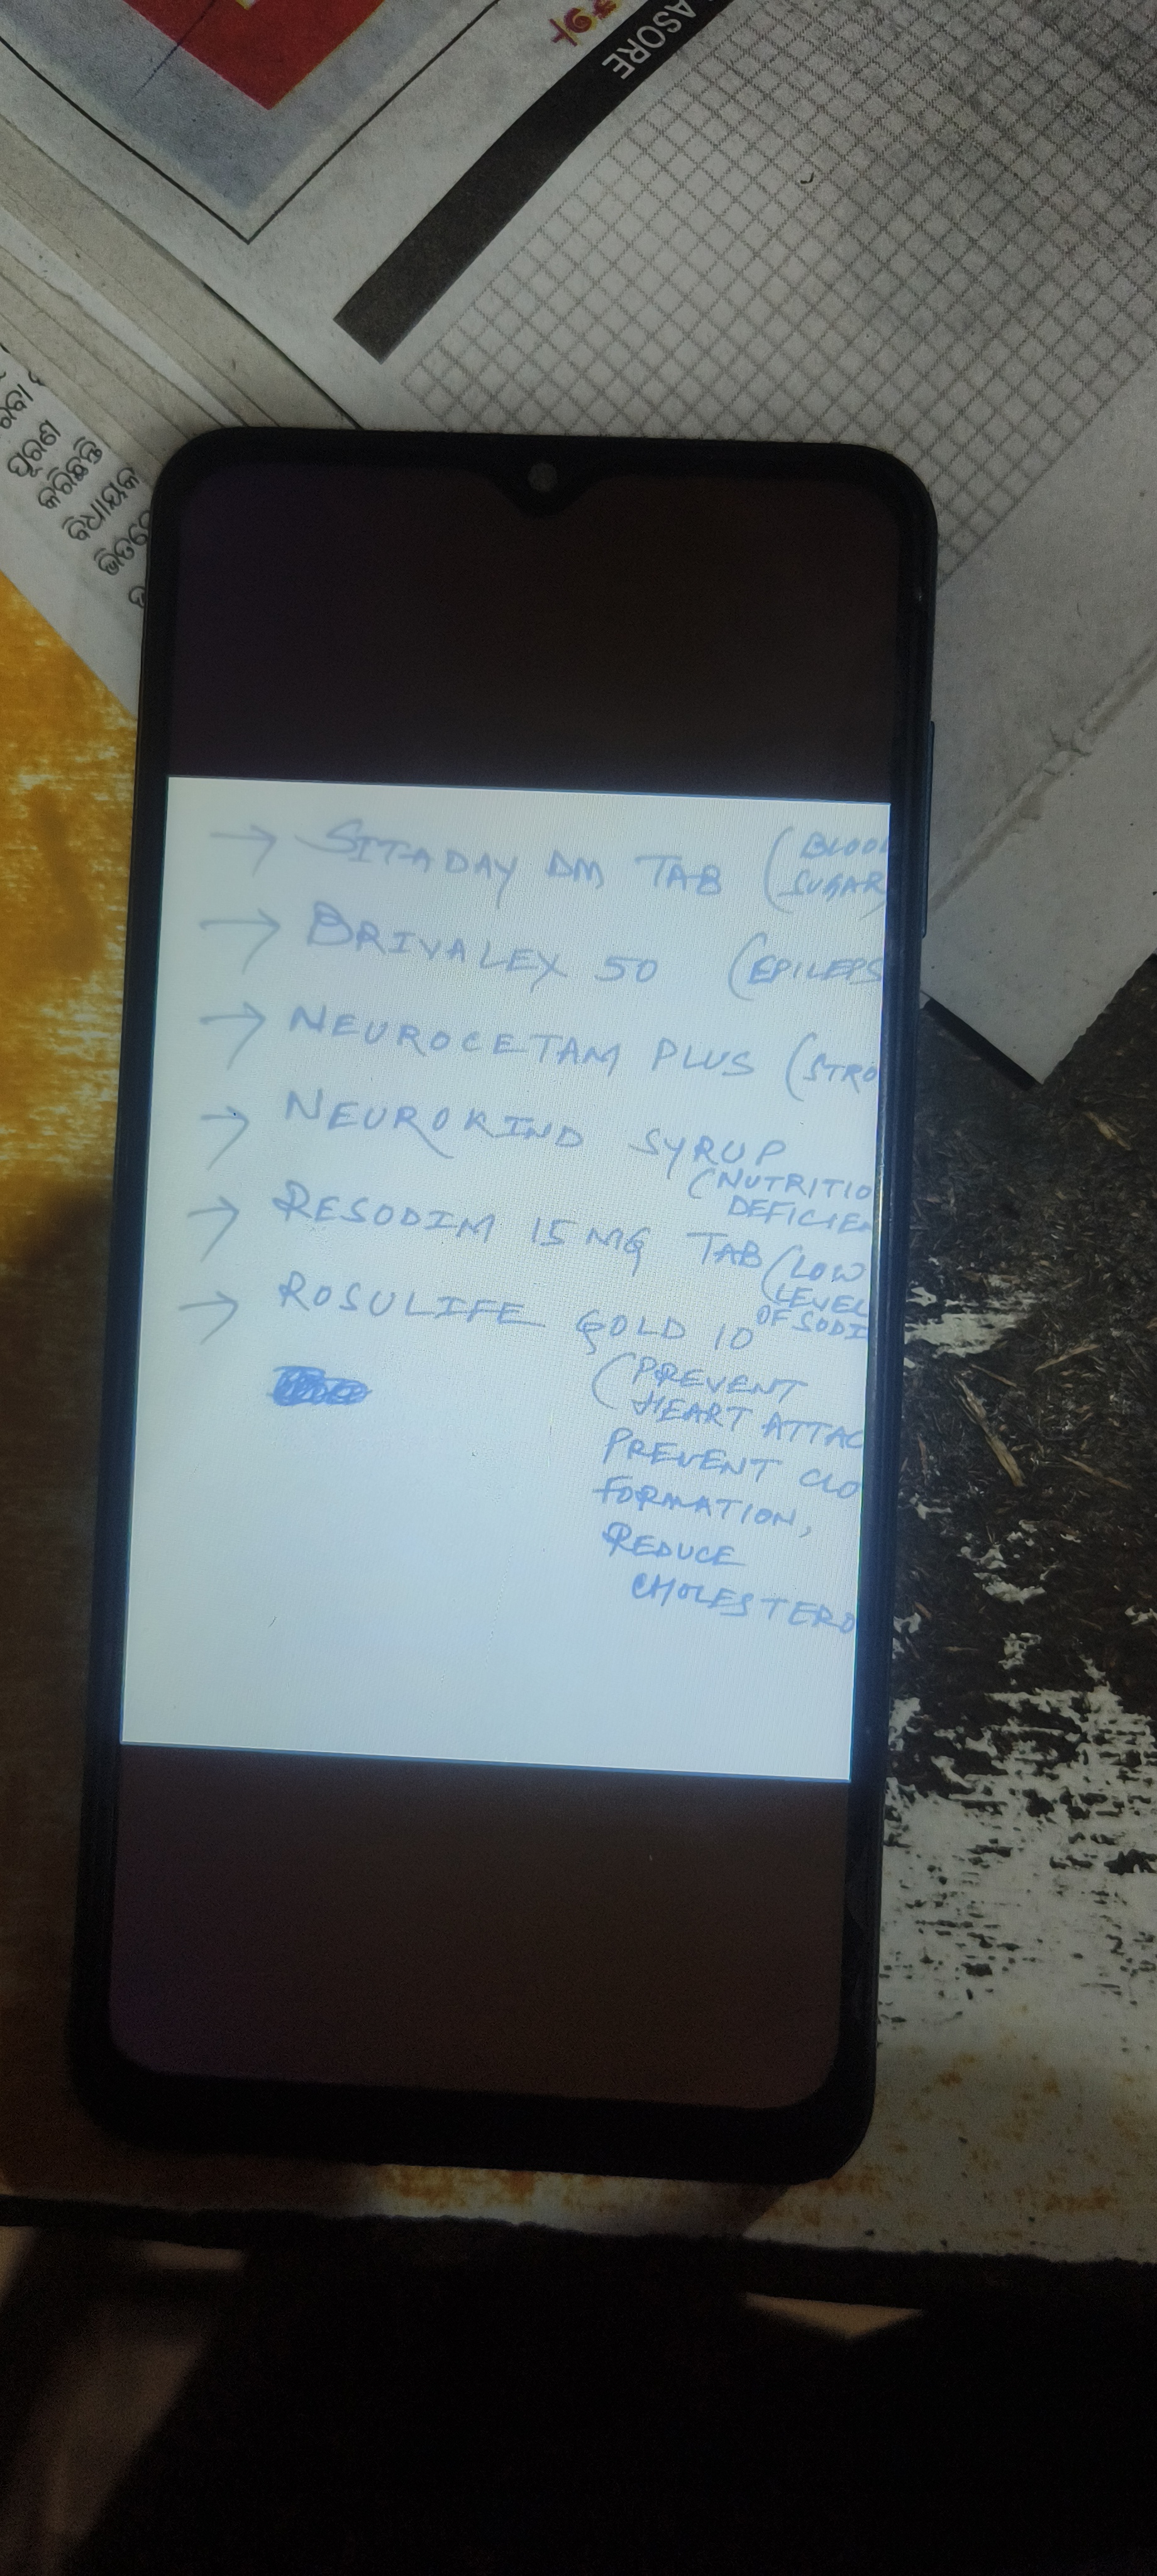 ₹9/-
ASORE
ପୂରଣ
କରିଛନ୍ତି
ବିଧାୟକ
→ SITADAY DM TAB (BLOOD
SUGAR)
→ BRIVALEX 50 (EPILEPS
→ NEUROCETAM PLUS (STRO
→ NEUROKIND SYRUP
(NUTRITIO
DEFICIEN
→ RESODIM 15 MG TAB (LOW
LEVEL
OF SODI
→ ROSULIFE GOLD 10
(PREVENT
HEART ATTAC
PREVENT CLO
FORMATION,
REDUCE
CHOLESTERO